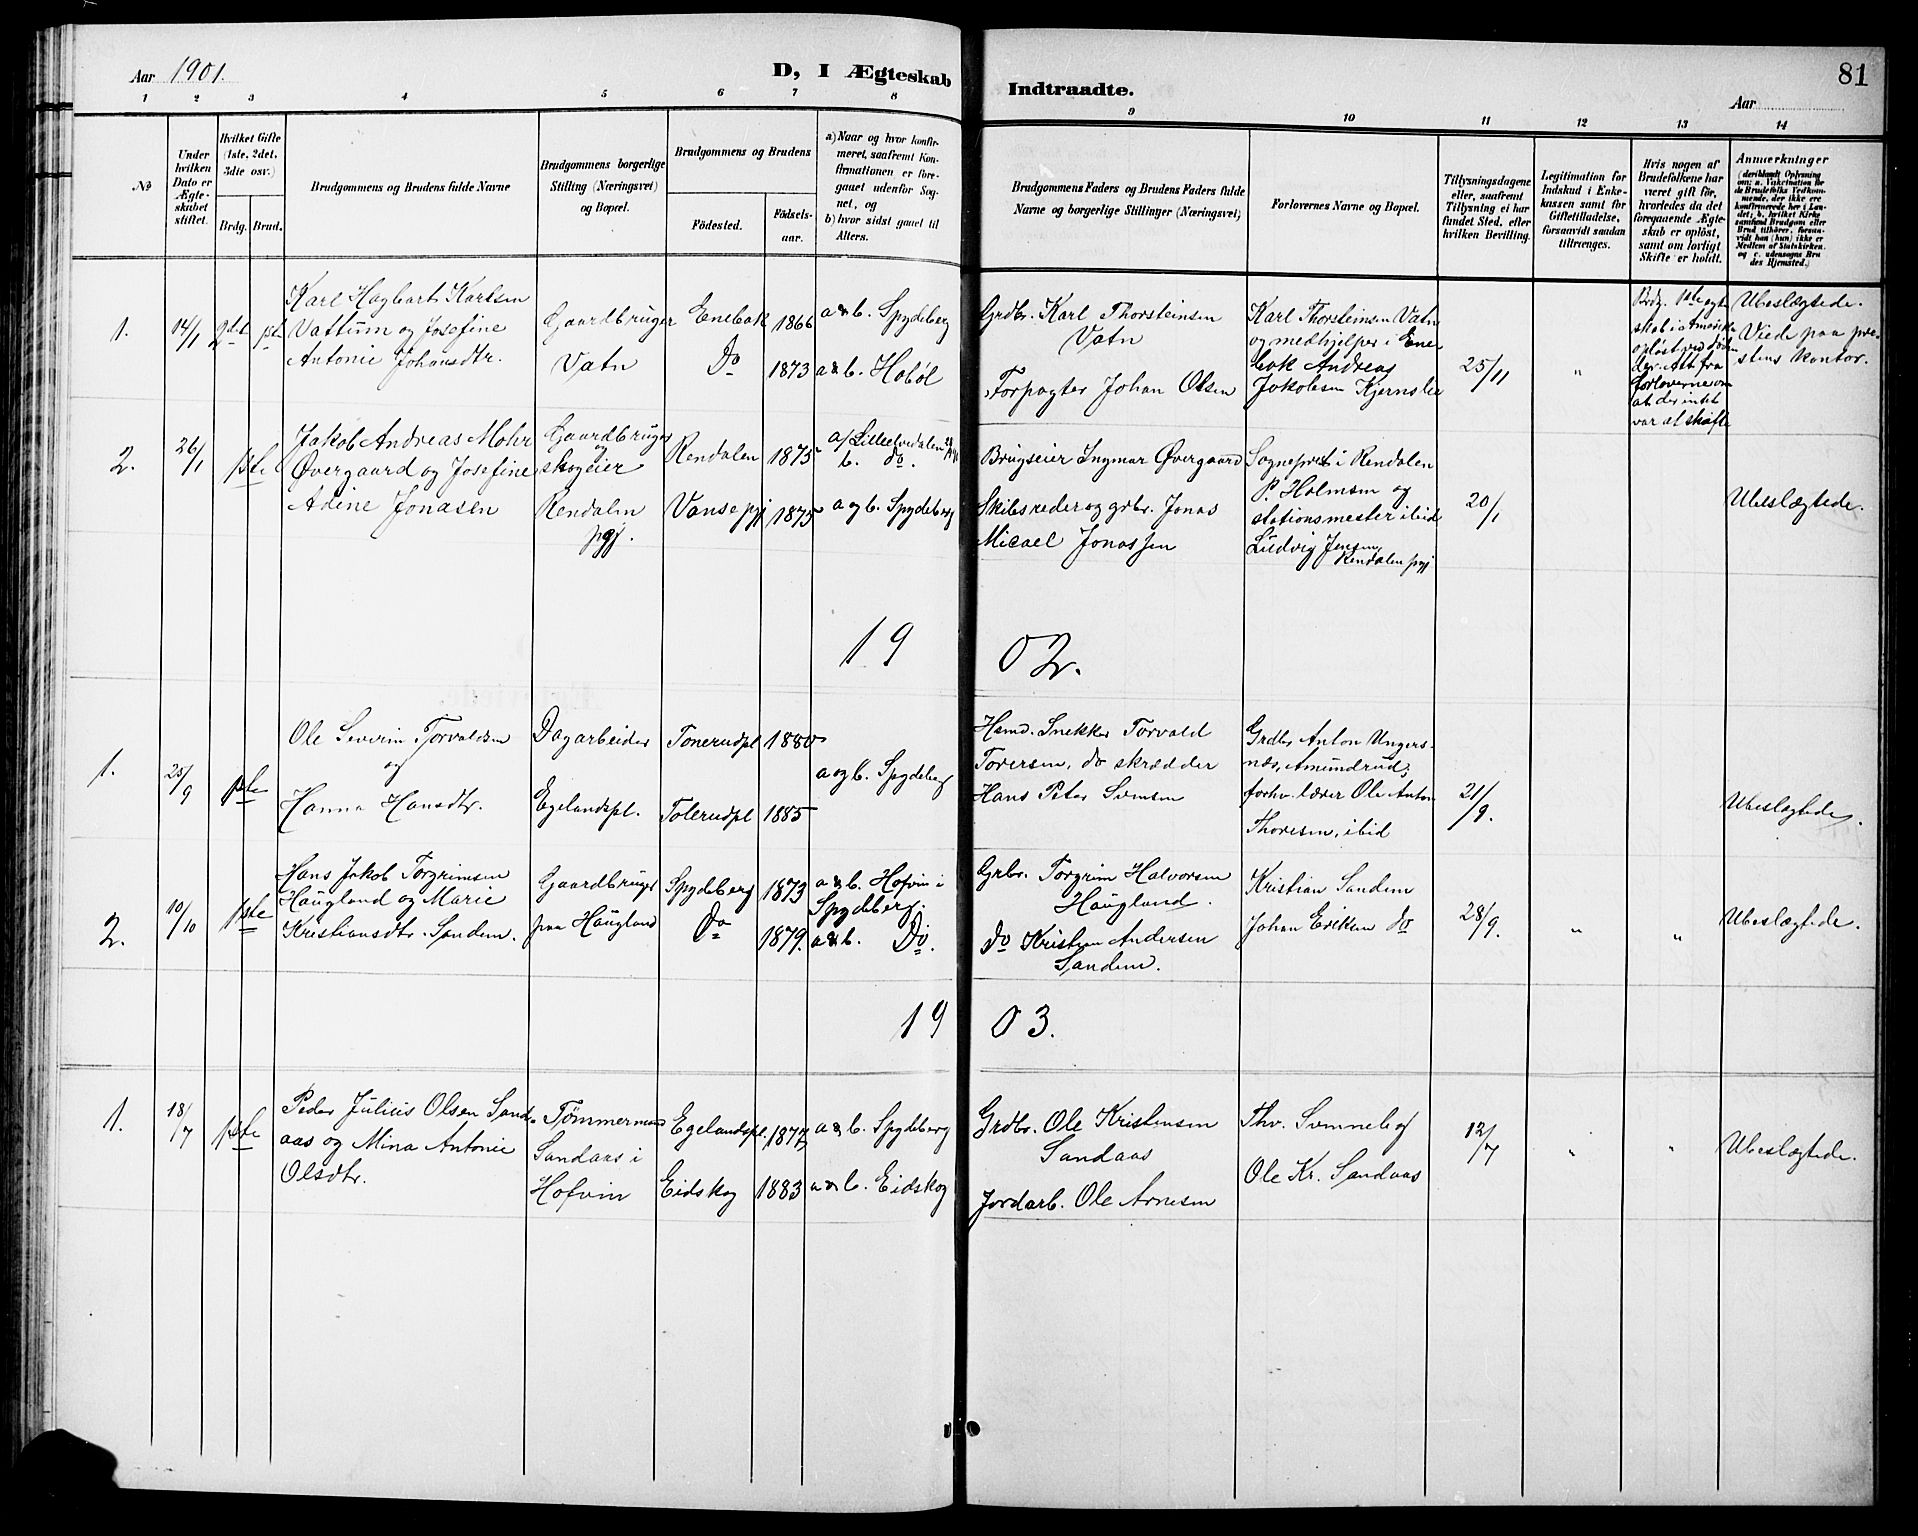 Aar 1901.
D, I Ægteskab
Indtraadte.
81
Aar
1 2 3 4 5 6 7 8 9 10 11 12 13 14
No
Under hvilken Dato er Ægteskabet stiftet.
Hvilket Gifte (1ste, 2det, 3dte osv.)
Brdg. Brud.
Brudgommens og Brudens fulde Navne
Brudgommens borgerlige Stilling (Næringsvei) og Bopæl.
Brudgommens og Brudens
Födested.
Födselsaar.
a) Naar og hvor konfirmeret, saafremt Konfirmationen er foregaaet udenfor Sognet, og
b) hvor sidst gaaet til Alters.
Brudgommens Faders og Brudens Faders fulde Navne og borgerlige Stillinger (Næringsvei)
Forlovernes Navne og Bopæl.
Tillysningsdagene eller, saafremt Tillysning ei har fundet Sted, efter hvilken Bevilling.
Legitimation for Indskud i Enkekassen samt for Giftetilladelse, forsaavidt saadan tiltrænges.
Hvis nogen af Brudefolkene har været gift før, hvorledes da det foregaaende Ægteskab er oplöst, samt om lovligt Skifte er holdt.
Anmærkninger
(deriblandt Oplysning om: a. Vakcination for de Brudefolks Vedkommende, der ikke ere konfirmerede her i Landet; b. hvilket Kirkesamfund Brudgom eller Brud tilhörer, forsaavidt han (hun) ikke er Medlem af Statskirken, og c. udensogns Brudes Hjemsted.)
1. 14/1 2det 1ste
Karl Hagbart Karlsen
Vattum og Josefine
Antonie Johansdtr.
Gaardbruger
Vatn
Enebak 1866 a & b. Spydeberg
Do 1873 a & b. Hobøl
Grdbr. Karl Thorsteinsen
Vatn
Forpagter Johan Olsen
Karl Thorsteinsen Vatn
og medhjelper i Ene
bak Andreas
Jakobsen Kjernslie
25/11
"
Brdg. 1ste egte
skab i Amerika
opløst ved døden
Att fra
forloverne om
at der intet
var at skifte
Ubeslægtede.
Viede paa pre
stens kontor.
2. 26/1 1ste
Jakob Andreas Mohr
Øvergaard og Josefine
Adine Jonasen
Gaardbruger
og
skogeier
Rendalen
pgj.
Rendalen 1875 a/ Lilleelvedalen
b. do.
Vanse pgj 1875 a og b. Spydeberg
Brugseier Ingmar Øvergaard
Skibsreder og grbr. Jonas
Micael Jonassen
Sogneprest i Rendalen
P. Holmsen og
stationsmester ibid
Ludvig Jensen,
Rendalen pgj
20/1
Ubeslægtede.
1902.
1. 25/9 1ste
Ole Severin Torvaldsen
og
Hanna Hansdtr.
Dagarbeider
Egelandspl.
Tonerudpl 1880
a og b. Spydeberg
Tolerudpl 1885
Hsmd. Snekker Torvald
Toversen, do skrædder
Hans Peter Svensen
Grdbr Anton Ungers-
næs, Amundrud;
forhv. lærer Ole Anton
Thoresen, ibid
21/9.
Ubeslægtede.
2. 10/10 1ste
Hans Jakob Torgrimsen
Haugland og Marie
Kristiansdtr. Sandem.
Gaardbruger
paa Haugland
Spydeberg 1873 a & b. Hofvin i
Spydeberg.
Do 1879. a & b. Do.
Grbr. Torgrim Halvorsen
Haugland.
do Kristian Andersen
Sandem.
Kristian Sandem
Johan Eriksen do
28/9.
" "
Ubeslægtede.
1903.
1. 18/7 1ste
Peder Julius Olsen Sand-
aas og Mina Antonie
Olsdtr.
Tømmermand
Sandaas i
Hofvin
Egelandspl. 1877 a & b. Spydeberg
Eidskog 1883 a & b. Eidskog
Grdbr. Ole Kristensen
Sandaas
Jordarb. Ole Arnesen
Thv. Svenneby
Ole Kr. Sandaas
12/7
" "
Ubeslægtede.